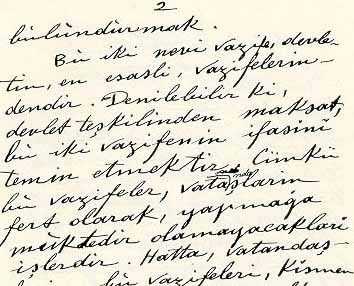 2
bulundurmak.
Bu iki nevi vazife, devle-
tin, en esaslı, vazifelerin-
dendir. Denilebilir ki,
devlet teşkilinden maksat,
bu iki vazifenin ifasını,
temin etmektir. Çünkü
bu vazifeler, vatandaşların
fert olarak, yapmağa
muktedir olamayacakları
işlerdir. Hatta, vatandaş-
bu vazifeleri, kısmen